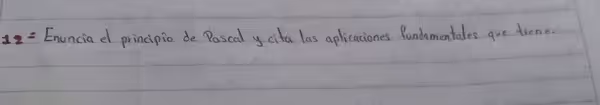 12= Enuncia el principio de Pascal y cita las aplicaciones fundamentales que tiene.